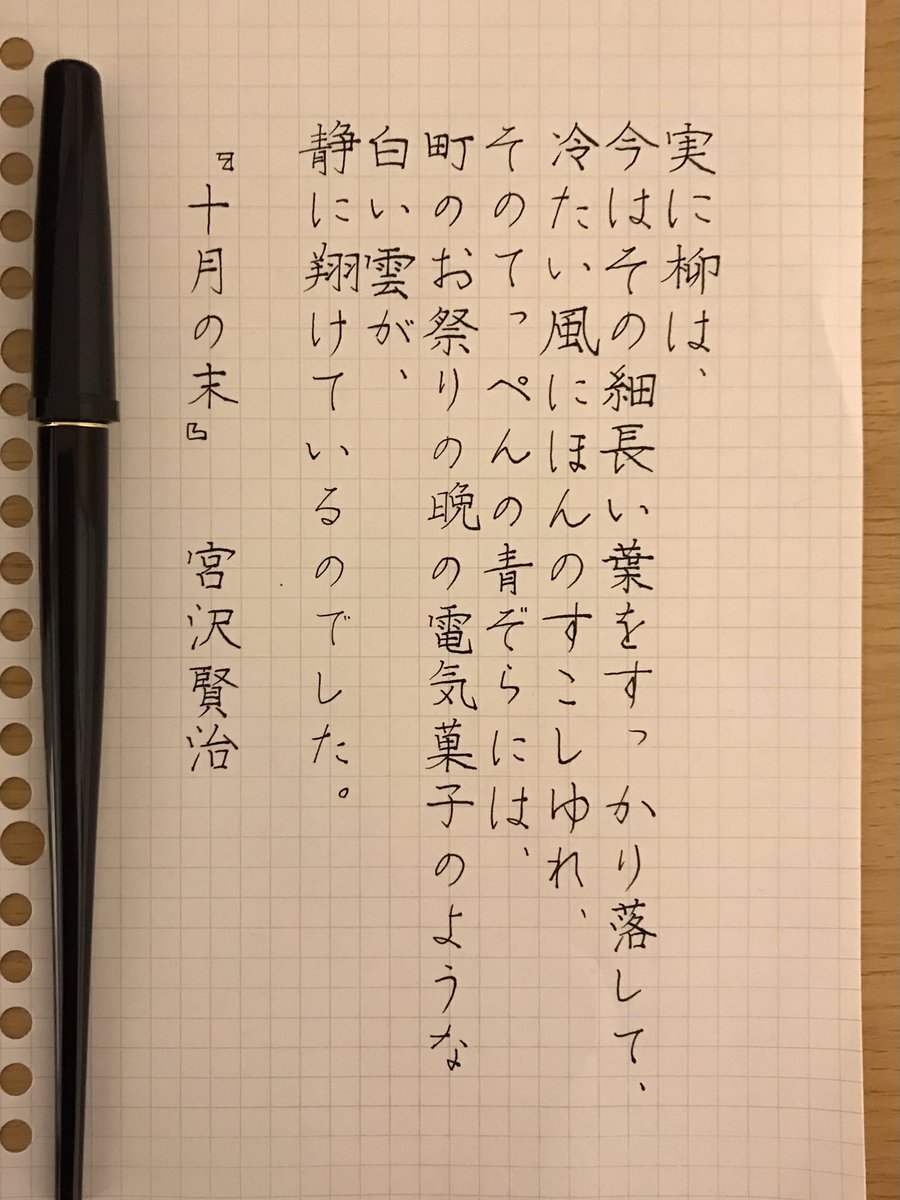 実に柳は、
今はその細長い葉をすっかり落して、
冷たい風にほんのすこしゆれ、
そのてっぺんの青ぞらには、
町のお祭りの晩の電気菓子のような
白い雲が、
静に翔けているのでした。
『十月の末』 宮沢賢治